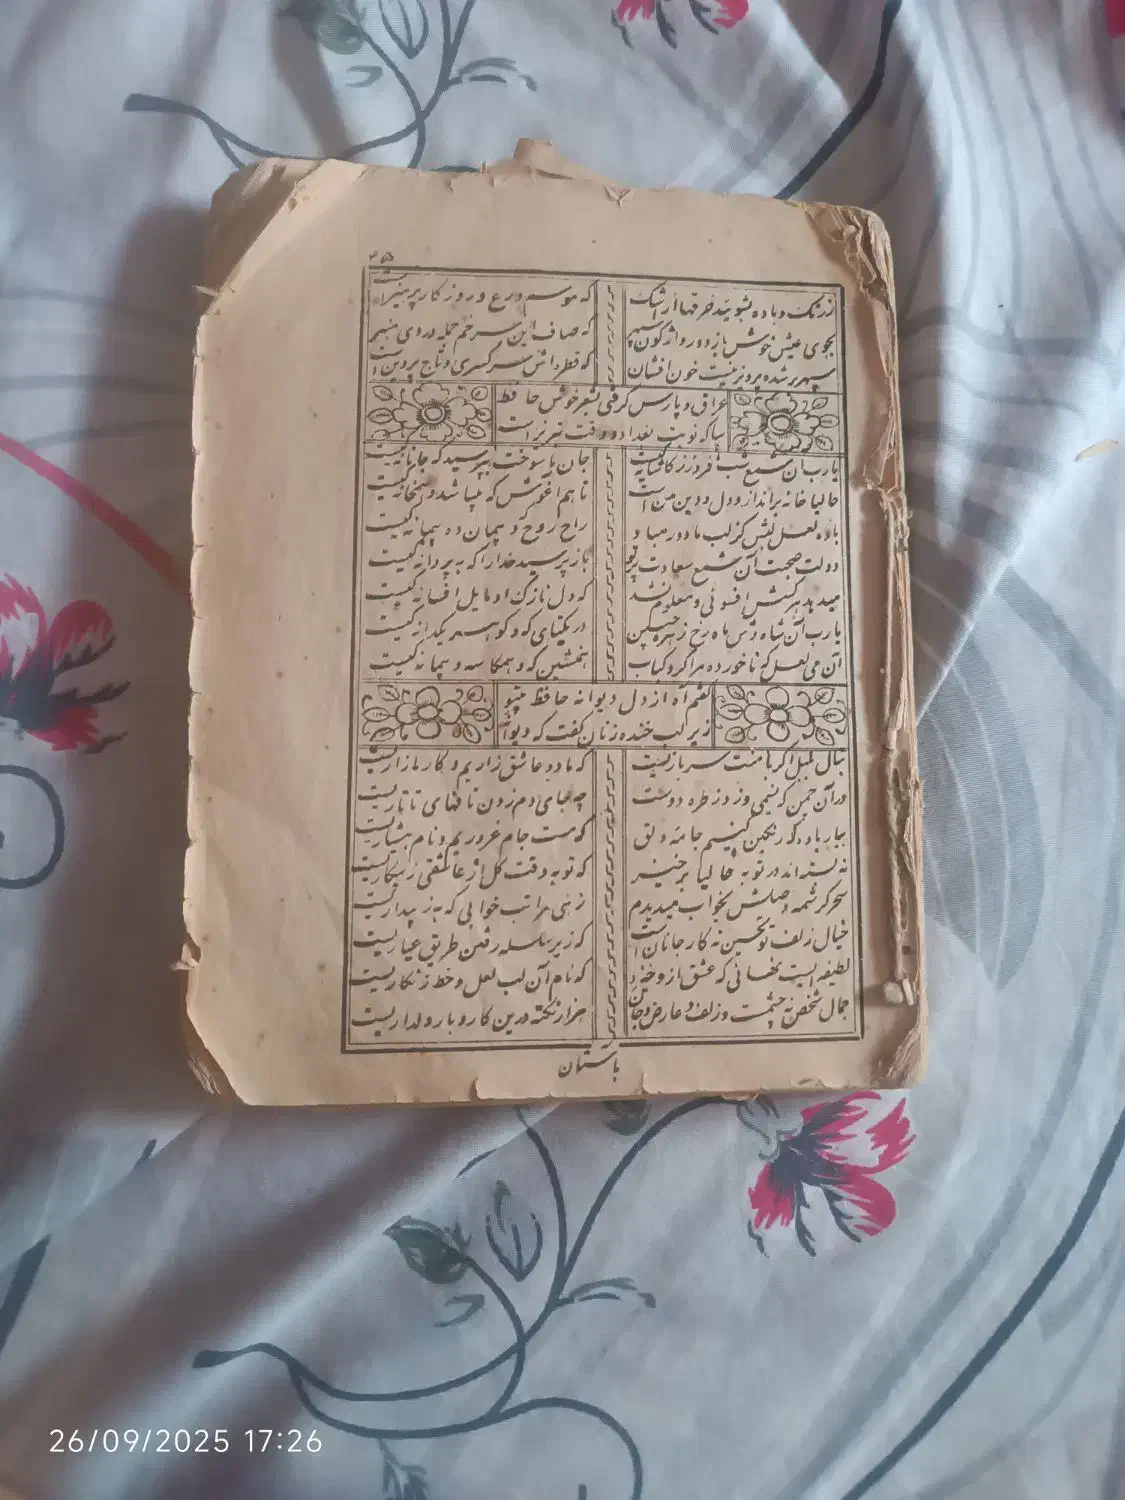 ۴۵
ز رنگ و باده بشویید خرقها از اشک که موسم ورع و روزگار پرهیز است
مجوی عیش خوش از دور واژگون سپهر که صاف این سر خم جمله دردی
سپهر بر شده پرویزنیست خون افشان که قطره‌اش سر کسری و تاج پرویز است
عراق و پارس گرفتی بشعر خوش حافظ
بیا که نوبت بغداد و وقت تبریز است
یارب آن شمع شب فروز ز کاشانه کیست جان ما سوخت بپرسید که جانانه کیست
حالیا خانه برانداز دل و دین من است تا هم آغوش که میباشد و همخانه کیست
باده لعل لبش کز لب ما دور مباد راح روح که و پیمان ده پیمانه کیست
دولت صحبت آن شمع سعادت پرتو باز پرسید خدا را که به پروانه کیست
میدمد هر کسش افسونی و معلوم نشد که دل نازک او مایل افسانه کیست
یارب آن شاه وش ماه رخ زهره جبین در یکتای که و گوهر یکدانه کیست
آن می لعل که ناخورده مرا کرد کباب همنشین که و همکاسه و پیمانه کیست
گفتم آه از دل دیوانه حافظ بیتو
زیر لب خنده زنان گفت که دیوانه
بنال بلبل اگر با منت سر یاریست که ما دو عاشق زاریم و کار ما زاریست
در آن چمن که نسیمی وزد ز طره دوست چه جای دم زدن نافهای تاتاریست
بیار باده که رنگین کنیم جامه دلق که مست جام غروریم و نام هشیاریست
نه بسته‌اند در توبه حالیا برخیز که توبه وقت گل از عاشقی ز بیکاریست
سحر کرشمه وصلش بخواب میدیدم زهی مراتب خوابی که به ز بیداریست
خیال زلف تو پختن نه کار خامان است که زیر سلسله رفتن طریق عیاریست
لطیفه ایست نهانی که عشق از و خیزد که نام آن لب لعل و خط زنگاریست
جمال شخص نه چشمست و زلف و عارض و خال هزار نکته درین کار و بار دلداریست
باستان
26/09/2025 17:26